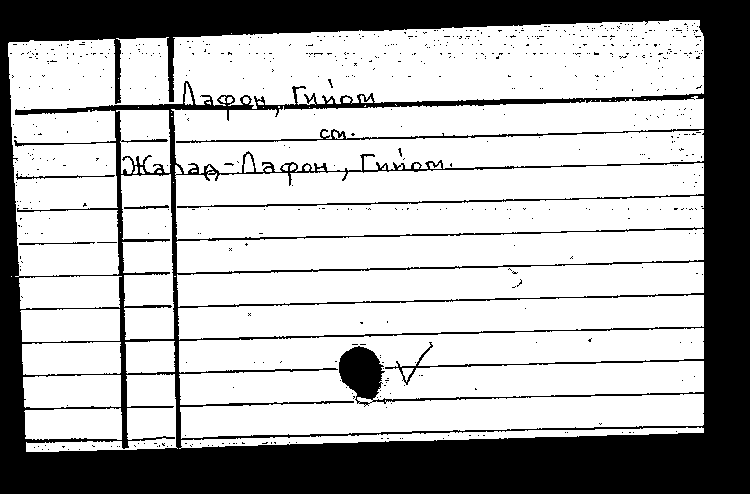 Лафон, Гийом
см.
Жалад-Лафон, Гийом.